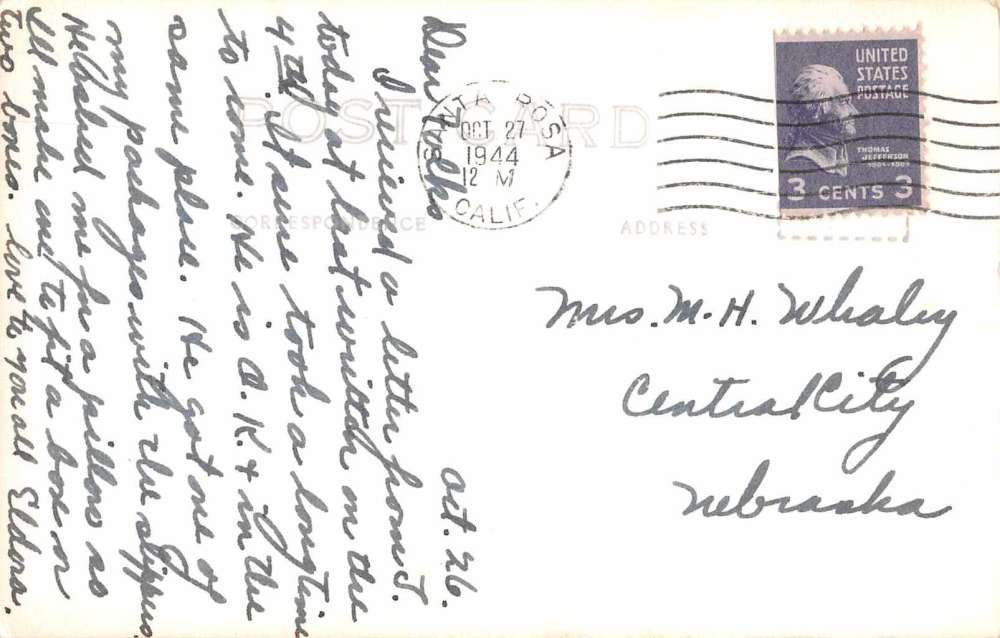 POST CARD
CORRESPONDENCE
ADDRESS
SANTA ROSA
OCT 27
1944
12 M
CALIF.
UNITED
STATES
POSTAGE
THOMAS
JEFFERSON
3 CENTS 3
Oct. 26.
Dear Folks
I received a letter from J.
today at last written on the
4th. It sure took a long time
to come. He is O.K. & in the
same place. He got one of
my packages with the slippers.
He asked me for a pillow so
I'll make one to fit a box or
two boxes. Love to you all Eldora.
Mrs. M. H. Whaley
Central City
Nebraska